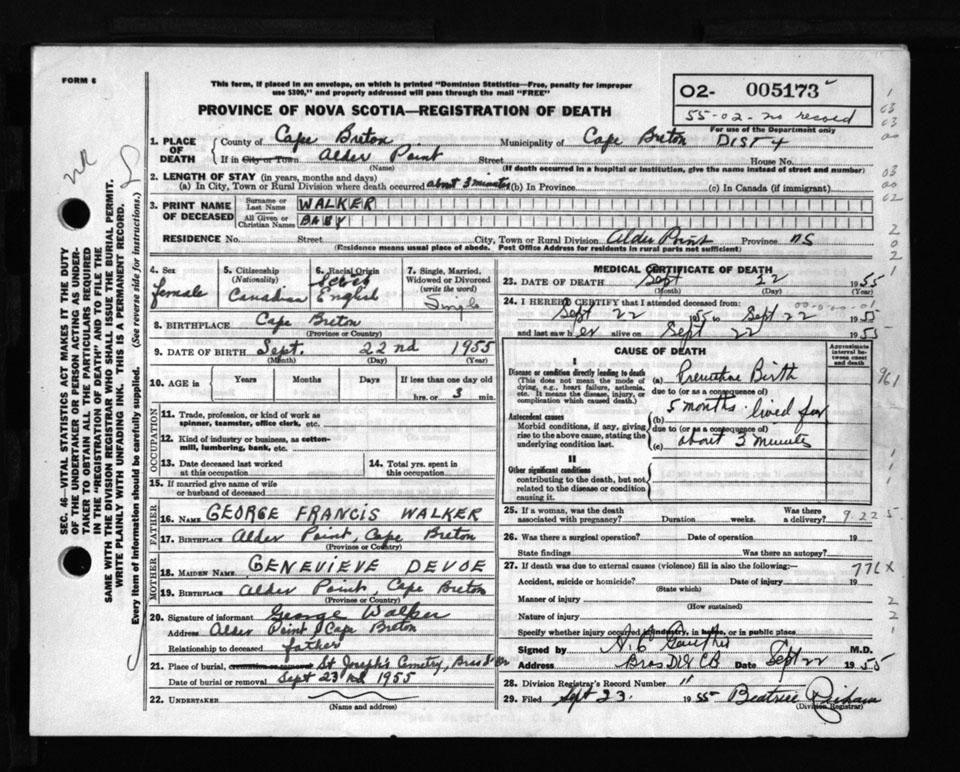 FORM 6
This form, if placed in an envelope, on which is printed "Dominion Statistics—Free, penalty for improper
use $300," and properly addressed will pass through the mail "FREE"
PROVINCE OF NOVA SCOTIA—REGISTRATION OF DEATH
O2- 005173
55-02-no record
For use of the Department only
SEC. 46—VITAL STATISTICS ACT MAKES IT THE DUTY
OF THE UNDERTAKER OR PERSON ACTING AS UNDER-
TAKER TO OBTAIN ALL THE PARTICULARS REQUIRED
IN THE "REGISTRATION OF DEATH" AND TO FILE THE
SAME WITH THE DIVISION REGISTRAR WHO SHALL ISSUE THE BURIAL PERMIT.
WRITE PLAINLY WITH UNFADING INK. THIS IS A PERMANENT RECORD.
Every item of information should be carefully supplied. (See reverse side for instructions.)
1. PLACE OF DEATH County of Cape Breton Municipality of Cape Breton DIST 4
If in City or Town Alder Point Street House No.
(Name) (If death occurred in a hospital or institution, give the name instead of street and number)
2. LENGTH OF STAY (in years, months and days)
(a) In City, Town or Rural Division where death occurred about 3 minutes (b) In Province (c) In Canada (if immigrant)
3. PRINT NAME OF DECEASED Surname or Last Name WALKER
All Given or Christian Names BABY
RESIDENCE No. Street City, Town or Rural Division Alder Point Province NS
(Residence means usual place of abode. Post Office Address for residents in rural parts not sufficient)
4. Sex female
5. Citizenship (Nationality) Canadian
6. Racial Origin English
7. Single, Married, Widowed or Divorced (write the word) Single
8. BIRTHPLACE Cape Breton
(Province or Country)
9. DATE OF BIRTH Sept. 22nd 1955
(Month) (Day) (Year)
10. AGE in Years Months Days If less than one day old
hrs. or 3 min.
OCCUPATION
11. Trade, profession, or kind of work as
spinner, teamster, office clerk, etc.
12. Kind of industry or business, as cotton-
mill, lumbering, bank, etc.
13. Date deceased last worked
at this occupation
14. Total yrs. spent in
this occupation
15. If married give name of wife
or husband of deceased
FATHER
16. NAME GEORGE FRANCIS WALKER
17. BIRTHPLACE Alder Point, Cape Breton
(Province or Country)
MOTHER
18. MAIDEN NAME GENEVIEVE DEVOE
19. BIRTHPLACE Alder Point, Cape Breton
(Province or Country)
20. Signature of informant George Walker
Address Alder Point, Cape Breton
Relationship to deceased father
21. Place of burial, cremation or removal St Joseph's Cemetry, Bras D'Or
Date of burial or removal Sept 23rd 1955
22. UNDERTAKER
(Name and address)
MEDICAL CERTIFICATE OF DEATH
23. DATE OF DEATH Sept 22 1955
(Month) (Day) (Year)
24. I HEREBY CERTIFY that I attended deceased from:
Sept 22 1955 to Sept 22 1955
and last saw her alive on Sept 22 1955
CAUSE OF DEATH
Approximate interval between onset and death
I
Disease or condition directly leading to death
(This does not mean the mode of
dying, e.g., heart failure, asthenia,
etc. It means the disease, injury, or
complication which caused death.)
(a) Premature Birth
due to (or as a consequence of)
Antecedent causes
Morbid conditions, if any, giving
rise to the above cause, stating the
underlying condition last.
(b) 5 months. lived for
due to (or as a consequence of)
(c) about 3 minutes
II
Other significant conditions
contributing to the death, but not
related to the disease or condition
causing it.
25. If a woman, was the death
associated with pregnancy? Duration weeks. Was there
a delivery?
9.22 5
26. Was there a surgical operation? Date of operation 19
State findings Was there an autopsy?
27. If death was due to external causes (violence) fill in also the following:—
776X
Accident, suicide or homicide? Date of injury 19
(State which)
Manner of injury
(How sustained)
Nature of injury
Specify whether injury occurred in industry, in home, or in public place.
Signed by M.D.
Address Bras D'Or CB Date Sept 22 1955
28. Division Registrar's Record Number 11
29. Filed Sept 23. 1955 Beatrice
(Division Registrar)
961